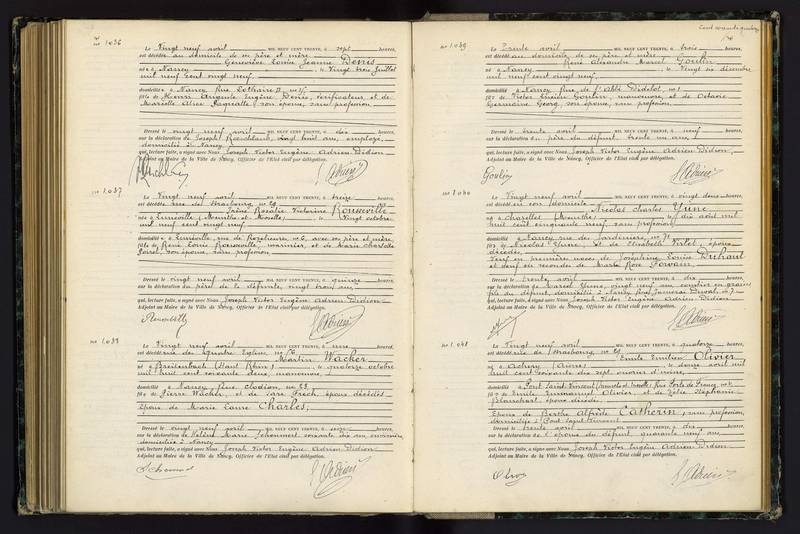 No 1.036
Le Vingt neuf avril MIL NEUF CENT TRENTE, à sept heures,
est décédée au domicile de ses père et mère
Geneviève Louise Jeanne Denis
née à Nancy, le Vingt trois Juillet
mil neuf cent vingt neuf.
domiciliée à Nancy, Rue Lotharie II,
fille de Henri Auguste Eugène Denis, vérificateur, et de
son épouse, sans profession.
Dressé le vingt neuf avril MIL NEUF CENT TRENTE, à dix heures,
sur la déclaration de Joseph vingt huit ans, employé,
domicilié à Nancy
qui, lecture faite, a signé avec Nous Joseph Victor Eugène Adrien Didion
Adjoint au Maire de la Ville de Nancy, Officier de l'Etat civil par délégation.
No 1.037
Le Vingt neuf avril MIL NEUF CENT TRENTE, à treize heures,
est décédée rue de Strasbourg, no 29
Irène Rosalie Victorine Rousseville
née à Lunéville (Meurthe et Moselle) le Vingt octobre
mil neuf cent vingt neuf
domiciliée à Lunéville, rue de no 6, avec ses père et mère,
fille de René Louis Rousseville, marinier, et de Marie Charlotte
son épouse, sans profession.
Dressé le vingt neuf avril MIL NEUF CENT TRENTE, à quinze heures,
sur la déclaration du père de la défunte, vingt trois ans,
qui, lecture faite, a signé avec Nous Joseph Victor Eugène Adrien Didion
Adjoint au Maire de la Ville de Nancy, Officier de l'Etat civil par délégation.
No 1.038
Le Vingt neuf avril MIL NEUF CENT TRENTE, à une heures,
est décédé rue des Quatre Eglises,
Martin Wacker
né à Breitenbach (Haut Rhin) le quatorze octobre
mil huit cent soixante deux, manoeuvre
domicilié à Nancy, rue Clodion, no 23
fils de Pierre Wacker, et de Sara Frech, époux décédés
Epoux de Marie Louise Charles,
Dressé le vingt neuf avril MIL NEUF CENT TRENTE, à seize heures,
sur la déclaration de Hélène Marie soixante dix ans,
domiciliée à Nancy
qui, lecture faite, a signé avec Nous Joseph Victor Eugène Adrien Didion
Adjoint au Maire de la Ville de Nancy, Officier de l'Etat civil par délégation.
No 1.039
Le Trente avril MIL NEUF CENT TRENTE, à trois heures,
est décédé au domicile de ses père et mère
René Alexandre Marcel Goulin
né à Nancy, le Vingt six décembre
mil neuf cent vingt neuf.
domicilié à Nancy, Rue de l'Abbé Didelot, no 1
fils de Victor Emile Goulin, manoeuvre, et de Octavie
Germaine Georg, son épouse, sans profession.
Dressé le trente avril MIL NEUF CENT TRENTE, à neuf heures,
sur la déclaration du père du défunt, trente un ans,
qui, lecture faite, a signé avec Nous Joseph Victor Eugène Adrien Didion,
Adjoint au Maire de la Ville de Nancy, Officier de l'Etat civil par délégation.
Goulin
Le Vingt neuf avril MIL NEUF CENT TRENTE, à vingt deux heures,
est décédé en son domicile
Nicolas Charles Yung
né à Charolles le dix août mil
huit cent cinquante neuf, sans profession
domicilié à Nancy rue de Jardiniers, no
fils de Nicolas Yung, et de Elisabeth Virlet, époux
décédés.
Veuf en premières noces de Joséphine Louise Duhaut
et veuf en secondes de Marie Rose
Dressé le trente avril MIL NEUF CENT TRENTE, à dix heures,
sur la déclaration de Marcel Yung, vingt neuf ans, courtier en grains
fils du défunt, domicilié à Nancy
qui, lecture faite, a signé avec Nous Joseph Victor Eugène Adrien Didion
Adjoint au Maire de la Ville de Nancy, Officier de l'Etat civil par délégation.
Le Vingt neuf avril MIL NEUF CENT TRENTE, à quatorze heures,
est décédé rue de Strasbourg,
Emile Emilien Olivier,
né à Achery (Aisne) le douze avril mil
huit cent soixante dix sept, ouvrier d'usine,
domicilié à Pont Saint Vincent (Meurthe et Moselle)
fils de Emile Emmanuel Olivier, et de Zélie Stéphanie
Blanchart, époux décédés.
Epoux de Berthe Alfrède Catherin, sans profession,
domiciliée à Pont Saint Vincent
Dressé le trente avril MIL NEUF CENT TRENTE, à dix heures,
sur la déclaration de l'épouse du défunt, quarante neuf ans
qui, lecture faite, a signé avec Nous Joseph Victor Eugène Adrien Didion
Adjoint au Maire de la Ville de Nancy, Officier de l'Etat civil par délégation.